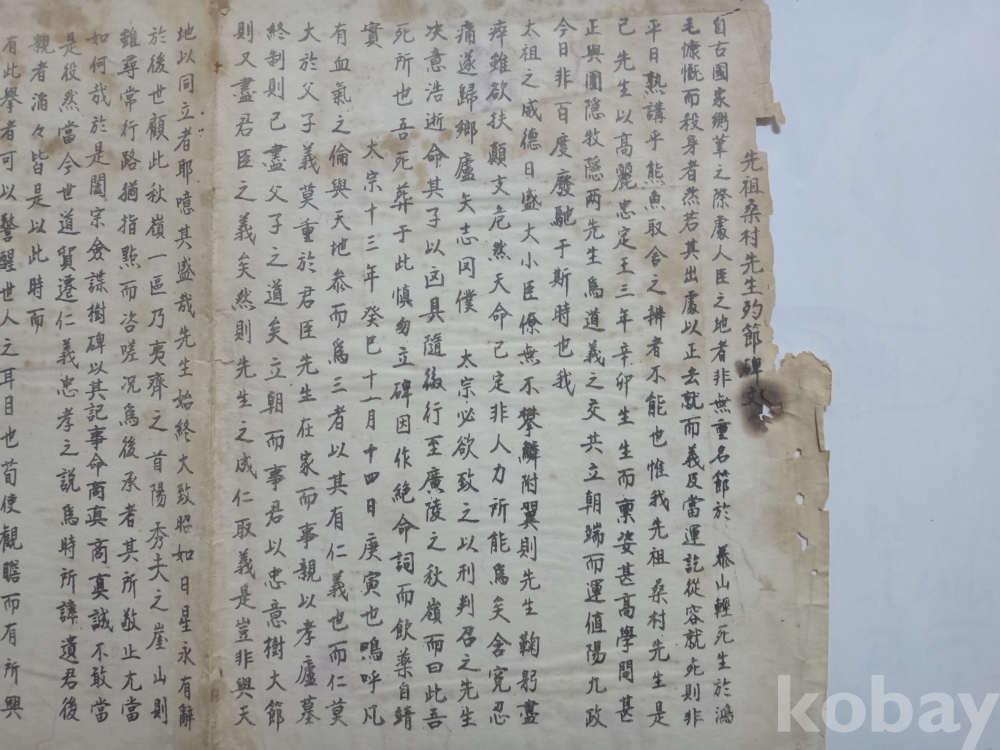 先祖桑村先生殉節碑文
自古國家衰革之際處人臣之地者非無重名節於泰山輕死生於鴻
毛慷慨而殺身者然若其出處以正去就而義及當運訖從容就死則非
平日熟講乎熊魚取舍之辨者不能也惟我先祖桑村先生是
已先生以高麗忠定王三年辛卯生生而稟姿甚高學問甚
正與圃隱牧隱兩先生爲道義之交共立朝端而運値陽九政
今日非百度廢馳于斯時也我
太祖之威德日盛大小臣僚無不攀鱗附翼則先生鞠躬盡
瘁雖欲扶顚支危然天命已定非人力所能爲矣含寃忍
痛遂歸鄕廬矢志罔僕太宗必欲致之以刑判召之先生
决意浩逝命其子以凶具隨後行至廣陵之秋嶺而曰此吾
死所也吾死葬于此愼勿立碑因作絶命詞而飮藥自靖
實太宗十三年癸巳十一月十四日庚寅也嗚呼凡
有血氣之倫與天地叅而爲三者以其有仁義也而仁莫
大於父子義莫重於君臣先生在家而事親以孝廬墓
終制則已盡父子之道矣立朝而事君以忠意樹大節
則又盡君臣之義矣然則先生之成仁取義是豈非與天
地以同立者耶噫其盛哉先生始終大致昭如日星永有辭
於後世顧此秋嶺一區乃夷齊之首陽秀夫之崖山則
雖尋常行路猶指點而咨嗟况爲後承者其所敬止尤當
如何哉於是闔宗僉謀樹碑以其記事命商眞商眞誠不敢當
是役然當今世道貿遷仁義忠孝之說爲時所諱遺君後
親者滔々皆是以此時而
有此擧者可以警醒世人之耳目也苟使觀瞻而有所興
kobay